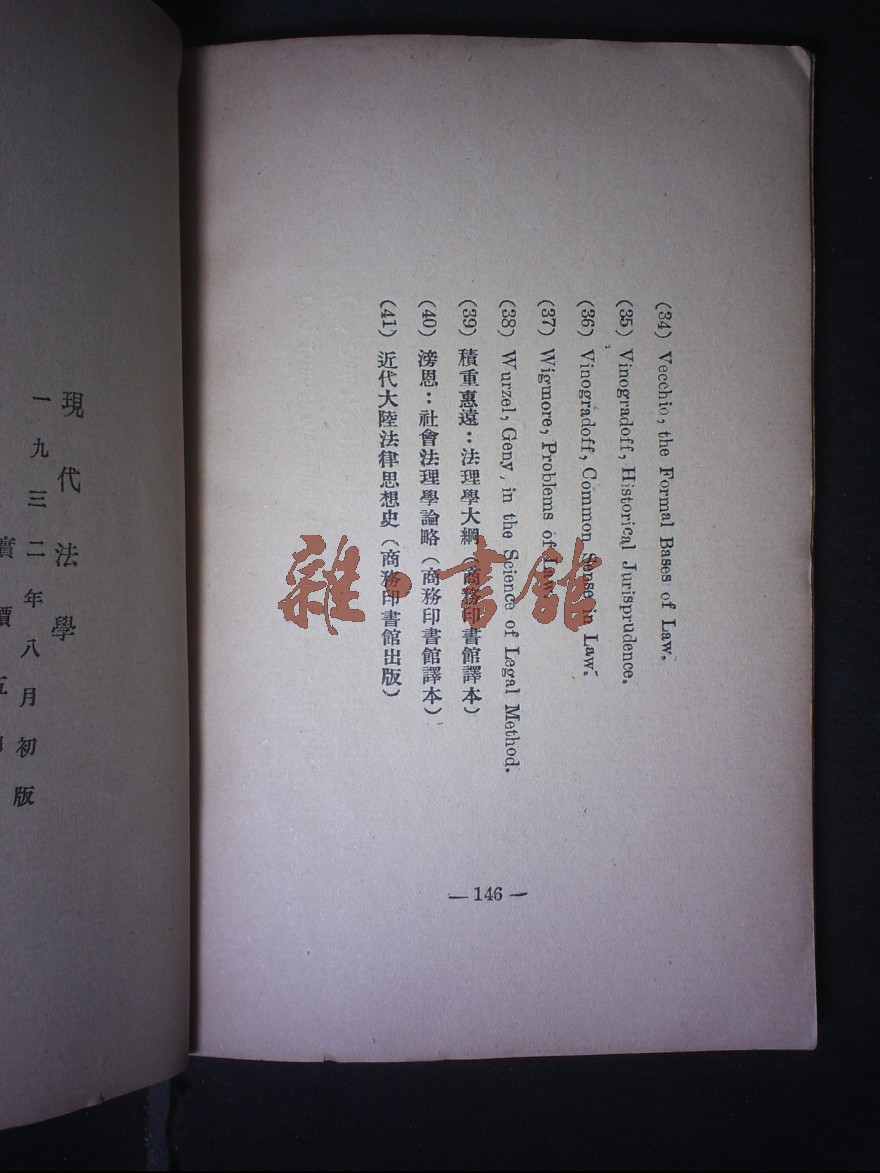 (34) Vecchio, the Formal Bases of Law.
(35) Vinogradoff, Historical Jurisprudence.
(36) Vinogradoff, Common Sense in Law.
(37) Wigmore, Problems of Law.
(38) Wurzel, Geny, in the Science of Legal Method.
(39) 積重惠遠:法理學大綱(商務印書館譯本)
(40) 滂恩:社會法理學論略(商務印書館譯本)
(41) 近代大陸法律思想史(商務印書館出版)
— 146 —
現代法學
一九三二年八月初版
實價
雜·書館